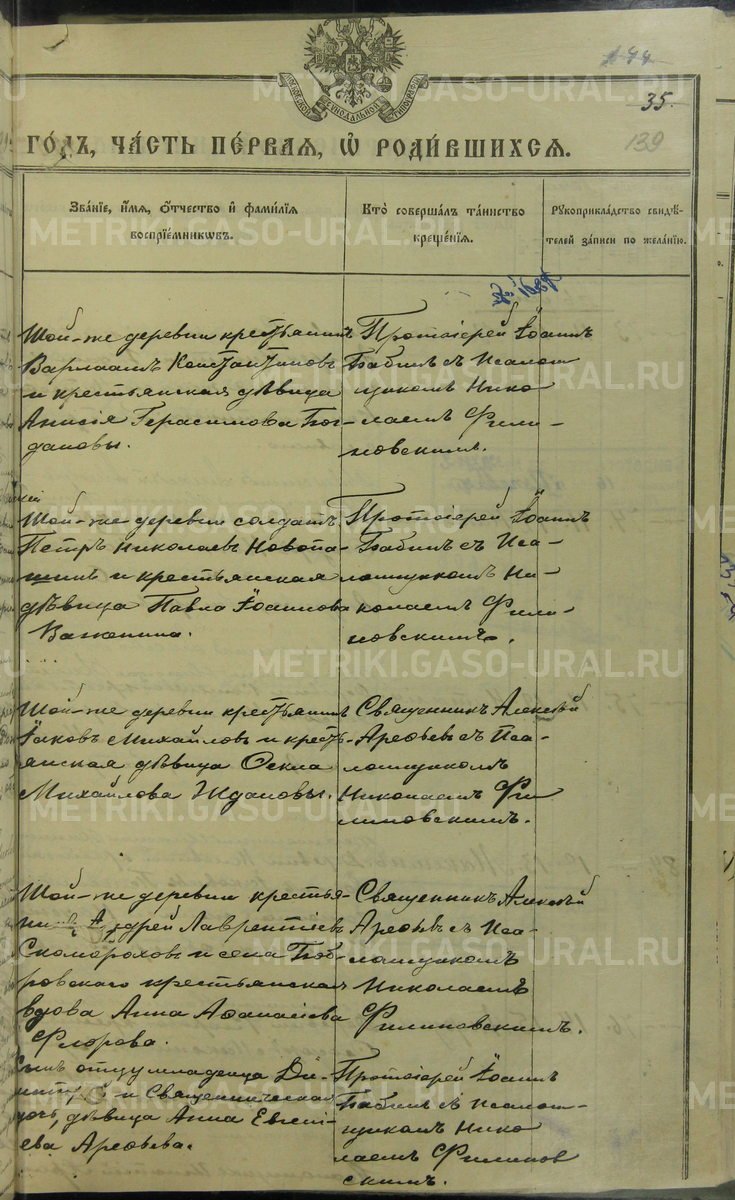 144
35.
139
МОСКОВСКОЙ СѴНОДАЛЬНОЙ ТИПОГРАФІИ
ГО́ДЪ, ЧА́СТЬ ПЕ́РВАЯ, Ѡ҆ РОДИ́ВШИХСЯ.
Зва́нїе, и҆́мя, ѻ҆́тчество и҆ фами́лїя
воспрїе́мникѡвъ.
Кто̀ соверша́лъ та́инство
креще́нїя.
Рꙋкоприкла́дство свидѣ́-
телей за́писи по жела́нїю.
Той-же деревни крестьянинъ
Варлаамъ Константиновъ
и крестьянская дѣвица
Анисія Герасимова Бог-
дановы.
Протоіерей Іоаннъ
Бабинъ съ псалом-
щикомъ Нико
лаемъ Фили-
новскимъ.
Той-же деревни солдатъ
Петръ Николаевъ Новопа-
шинъ и крестьянская
дѣвица Павла Іоаннова
Важенина.
Протоіерей Іоаннъ
Бабинъ съ Пса-
ломщикомъ Ни-
колаемъ Фили-
новскимъ.
Той-же деревни крестьянинъ
Іаковъ Михайловъ и кресть-
янская дѣвица Ѳекла
Михайлова Ждановы.
Священникъ Алексѣй
Арефьевъ съ Пса-
ломщикомъ
Николаемъ Фи
линовскимъ.
Той-же деревни крестья-
нинъ Андрей Лаврентіевъ
Скомороховъ и села Боб-
ровскаго крестьянская
вдова Анна Афанасіева
Флорова.
Священникъ Алексѣй
Арефьевъ съ Пса-
ломщикомъ
Николаемъ
Филиновскимъ.
Сынъ отцу младенца Ди-
митрій и Священническая
дочь, дѣвица Анна Евгені-
ева Арефьева.
Протоіерей Іоаннъ
Бабинъ съ псалом-
щикомъ Нико
лаемъ Филинов
скимъ.
METRIKI.GASO-URAL.RU